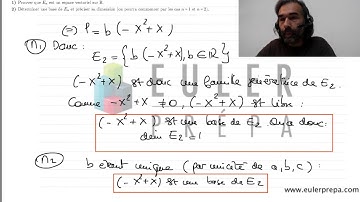 1) Prouver que Eₙ est un espace vectoriel sur ℝ.
2) Déterminer une base de Eₙ et préciser sa dimension (on pourra commencer par les cas n = 1 et n = 2).
⇔ P = b (-X²+X)
m1 Donc :
E₂ = { b (-X²+X), b ∈ ℝ }
(-X²+X) est donc une famille génératrice de E₂.
Comme -X²+X ≠ 0, (-X²+X) est libre :
(-X²+X) est une base de E₂. On a donc :
dim E₂ = 1
m2 b étant unique (par unicité de a, b, c) :
(-X²+X) est une base de E₂
EULER
PREPA
www.eulerprepa.com